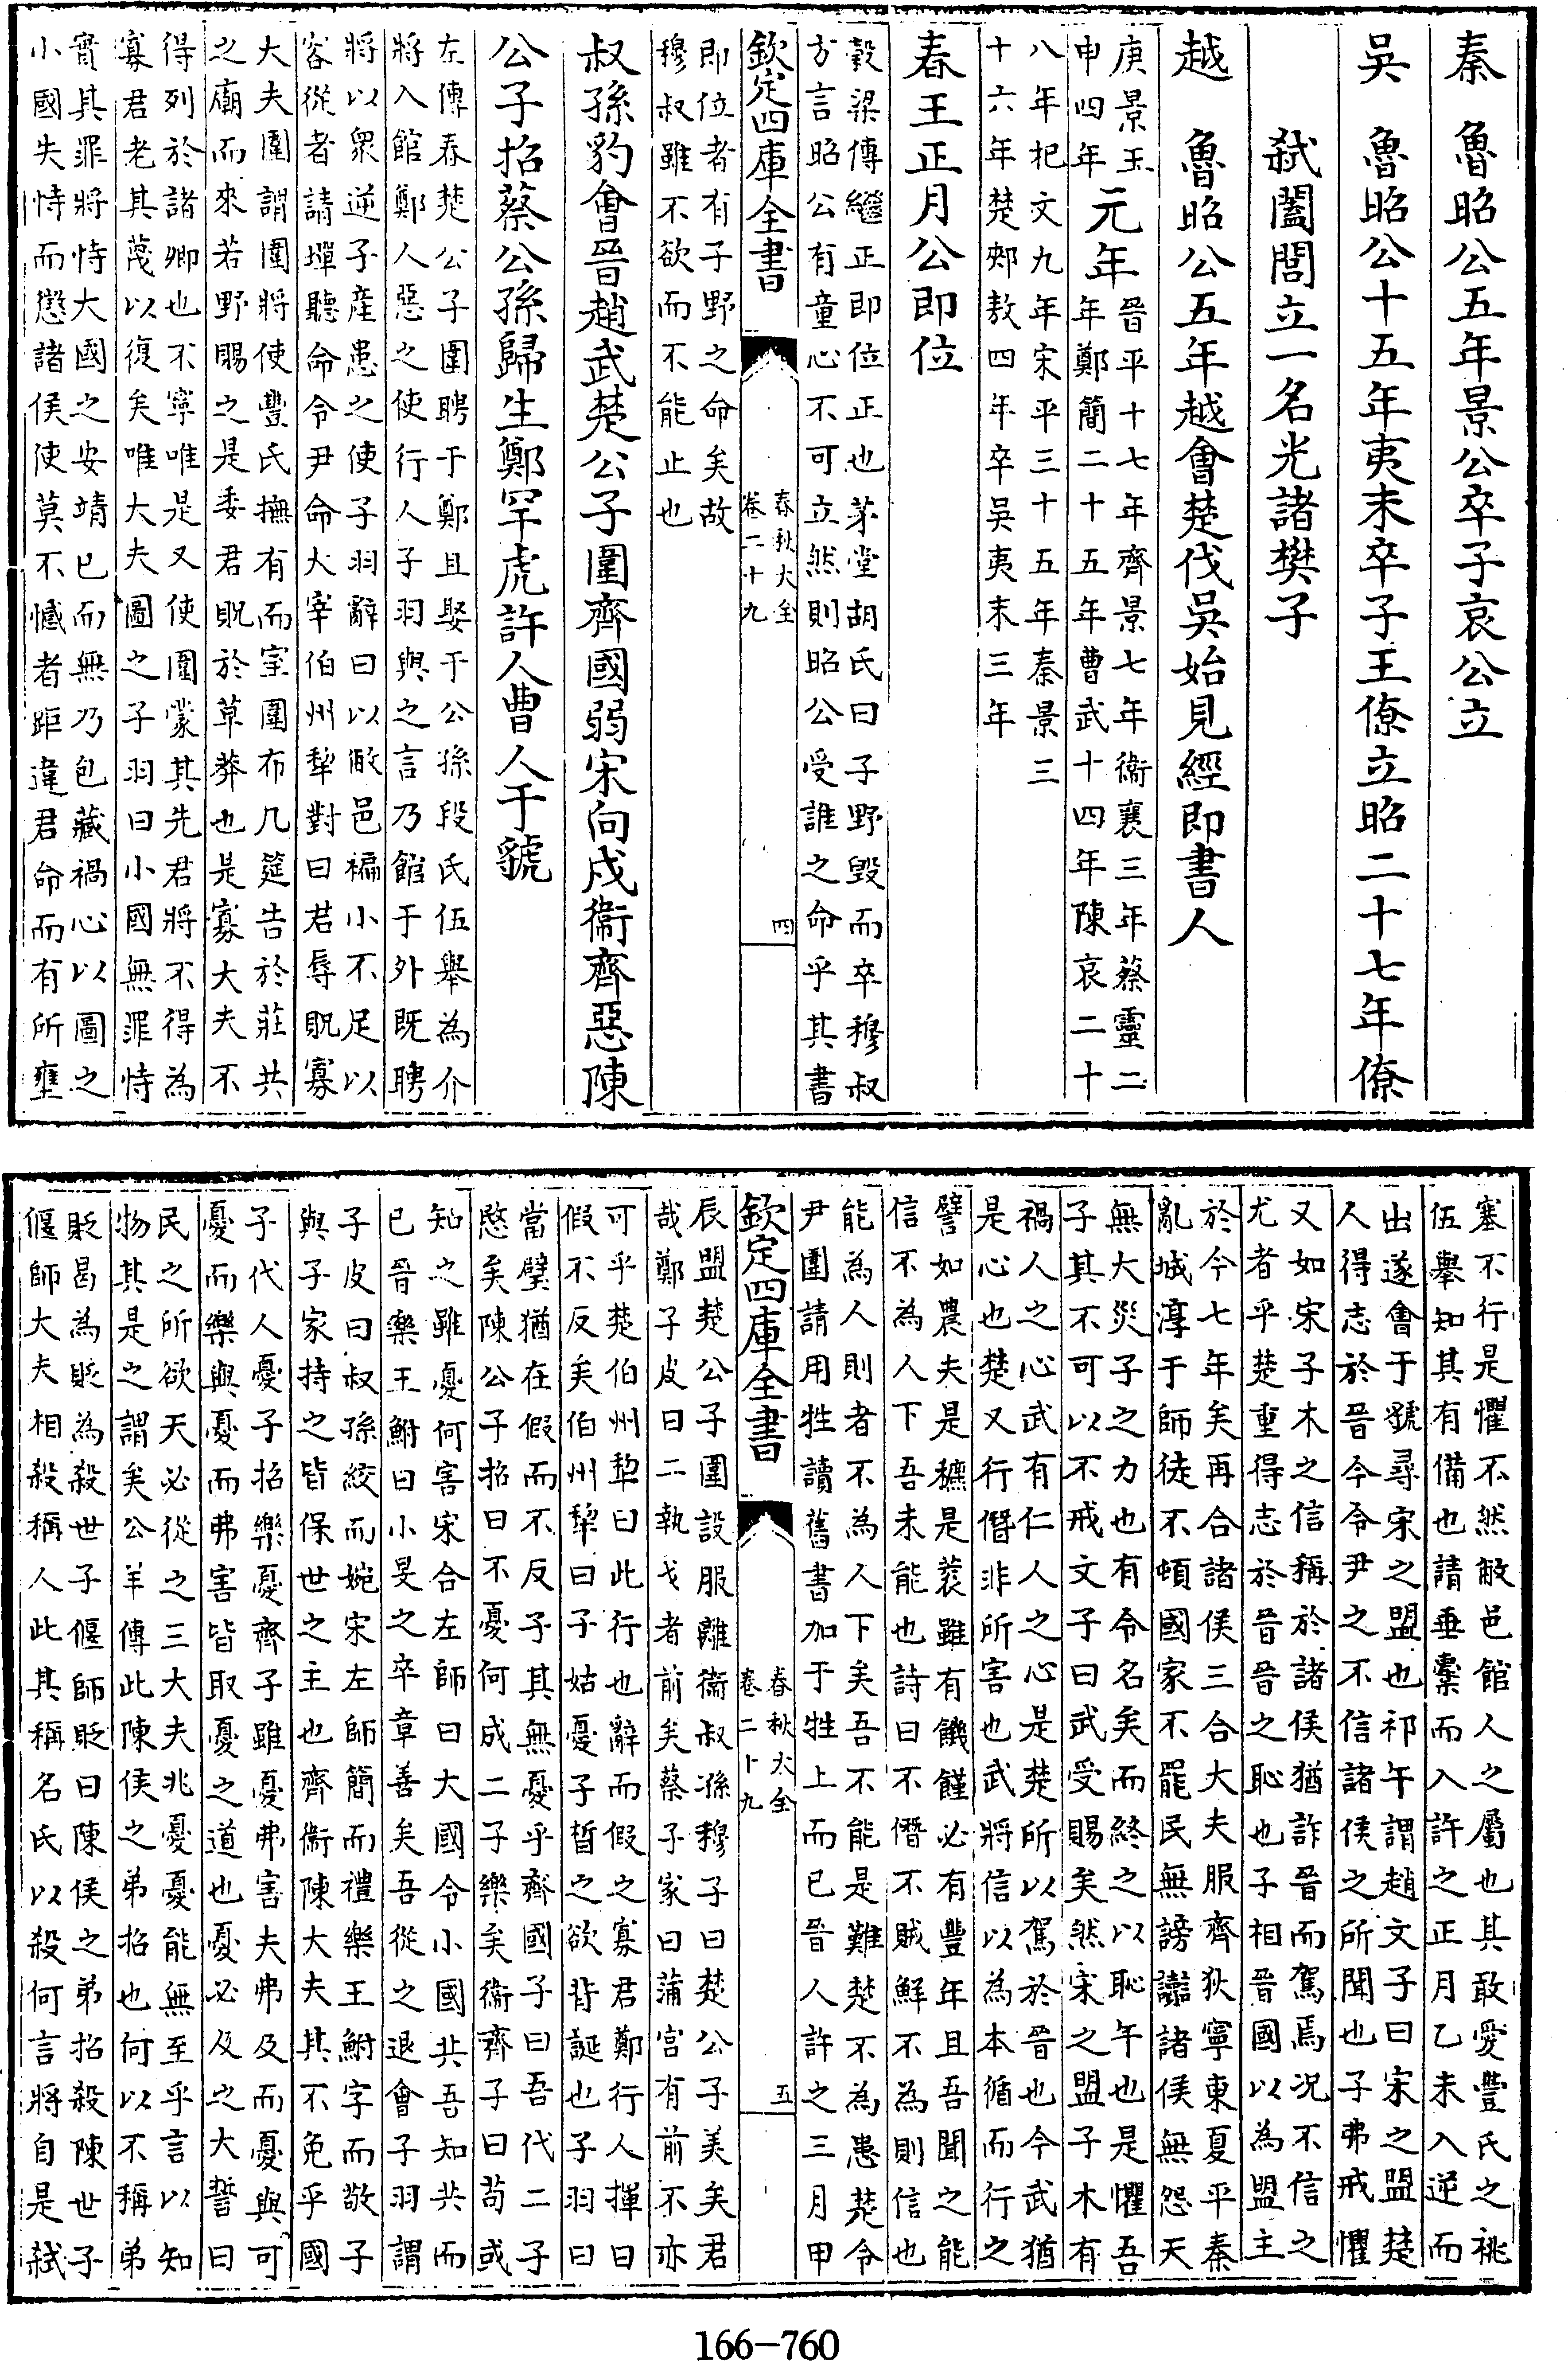 秦　魯昭公五年景公卒子哀公立
吳　魯昭公十五年夷末卒子王僚立昭二十七年僚
弑闔閭立一名光諸樊子
越　魯昭公五年越會楚伐吳始見經即書人
庚景王
申四年
元年
晉平十七年齊景七年衞襄三年蔡靈二
年鄭簡二十五年曹武十四年陳哀二十
八年杞文九年宋平三十五年秦景三
十六年楚郟敖四年卒吳夷末三年
春王正月公即位
穀梁傳繼正即位正也茅堂胡氏曰子野毀而卒穆叔
方言昭公有童心不可立然則昭公受誰之命乎其書
欽定四庫全書
春秋大全
卷二十九
四
即位者有子野之命矣故
穆叔雖不欲而不能止也
叔孫豹會晉趙武楚公子圍齊國弱宋向戌衞齊惡陳
公子招蔡公孫歸生鄭罕虎許人曹人于虢
左傳春楚公子圍聘于鄭且娶于公孫段氏伍舉為介
將入館鄭人惡之使行人子羽與之言乃館于外既聘
將以衆逆子產患之使子羽辭曰以敝邑褊小不足以
容從者請墠聽命令尹命大宰伯州犂對曰君辱貺寡
大夫圍謂圍將使豐氏撫有而室圍布几筵告於莊共
之廟而來若野賜之是委君貺於草莽也是寡大夫不
得列於諸卿也不寧唯是又使圍蒙其先君將不得為
寡君老其蔑以復矣唯大夫圖之子羽曰小國無罪恃
實其罪將恃大國之安靖已而無乃包藏禍心以圖之
小國失恃而懲諸侯使莫不憾者距違君命而有所壅
塞不行是懼不然敝邑館人之屬也其敢愛豐氏之祧
伍舉知其有備也請垂櫜而入許之正月乙未入逆而
出遂會于虢尋宋之盟也祁午謂趙文子曰宋之盟楚
人得志於晉今令尹之不信諸侯之所聞也子弗戒懼
又如宋子木之信稱於諸侯猶詐晉而駕焉况不信之
尤者乎楚重得志於晉晉之恥也子相晉國以為盟主
於今七年矣再合諸侯三合大夫服齊狄寧東夏平秦
亂城淳于師徒不頓國家不罷民無謗讟諸侯無怨天
無大災子之力也有令名矣而終之以恥午也是懼吾
子其不可以不戒文子曰武受賜矣然宋之盟子木有
禍人之心武有仁人之心是楚所以駕於晉也今武猶
是心也楚又行僭非所害也武將信以為本循而行之
譬如農夫是穮是蓘雖有饑饉必有豐年且吾聞之能
信不為人下吾未能也詩曰不僭不賊鮮不為則信也
能為人則者不為人下矣吾不能是難楚不為患楚令
尹圍請用牲讀舊書加于牲上而已晉人許之三月甲
欽定四庫全書
春秋大全
卷二十九
五
辰盟楚公子圍設服離衞叔孫穆子曰楚公子美矣君
哉鄭子皮曰二執戈者前矣蔡子家曰蒲宮有前不亦
可乎楚伯州犂曰此行也辭而假之寡君鄭行人揮曰
假不反矣伯州犂曰子姑憂子晳之欲背誕也子羽曰
當璧猶在假而不反子其無憂乎齊國子曰吾代二子
愍矣陳公子招曰不憂何成二子樂矣衞齊子曰苟或
知之雖憂何害宋合左師曰大國令小國共吾知共而
已晉樂王鮒曰小旻之卒章善矣吾從之退會子羽謂
子皮曰叔孫絞而婉宋左師簡而禮樂王鮒字而敬子
與子家持之皆保世之主也齊衞陳大夫其不免乎國
子代人憂子招樂憂齊子雖憂弗害夫弗及而憂與可
憂而樂與憂而弗害皆取憂之道也憂必及之大誓曰
民之所欲天必從之三大夫兆憂憂能無至乎言以知
物其是之謂矣公羊傳此陳侯之弟招也何以不稱弟
貶曷為貶為殺世子偃師貶曰陳侯之弟招殺陳世子
偃師大夫相殺稱人此其稱名氏以殺何言將自是弑
166-760